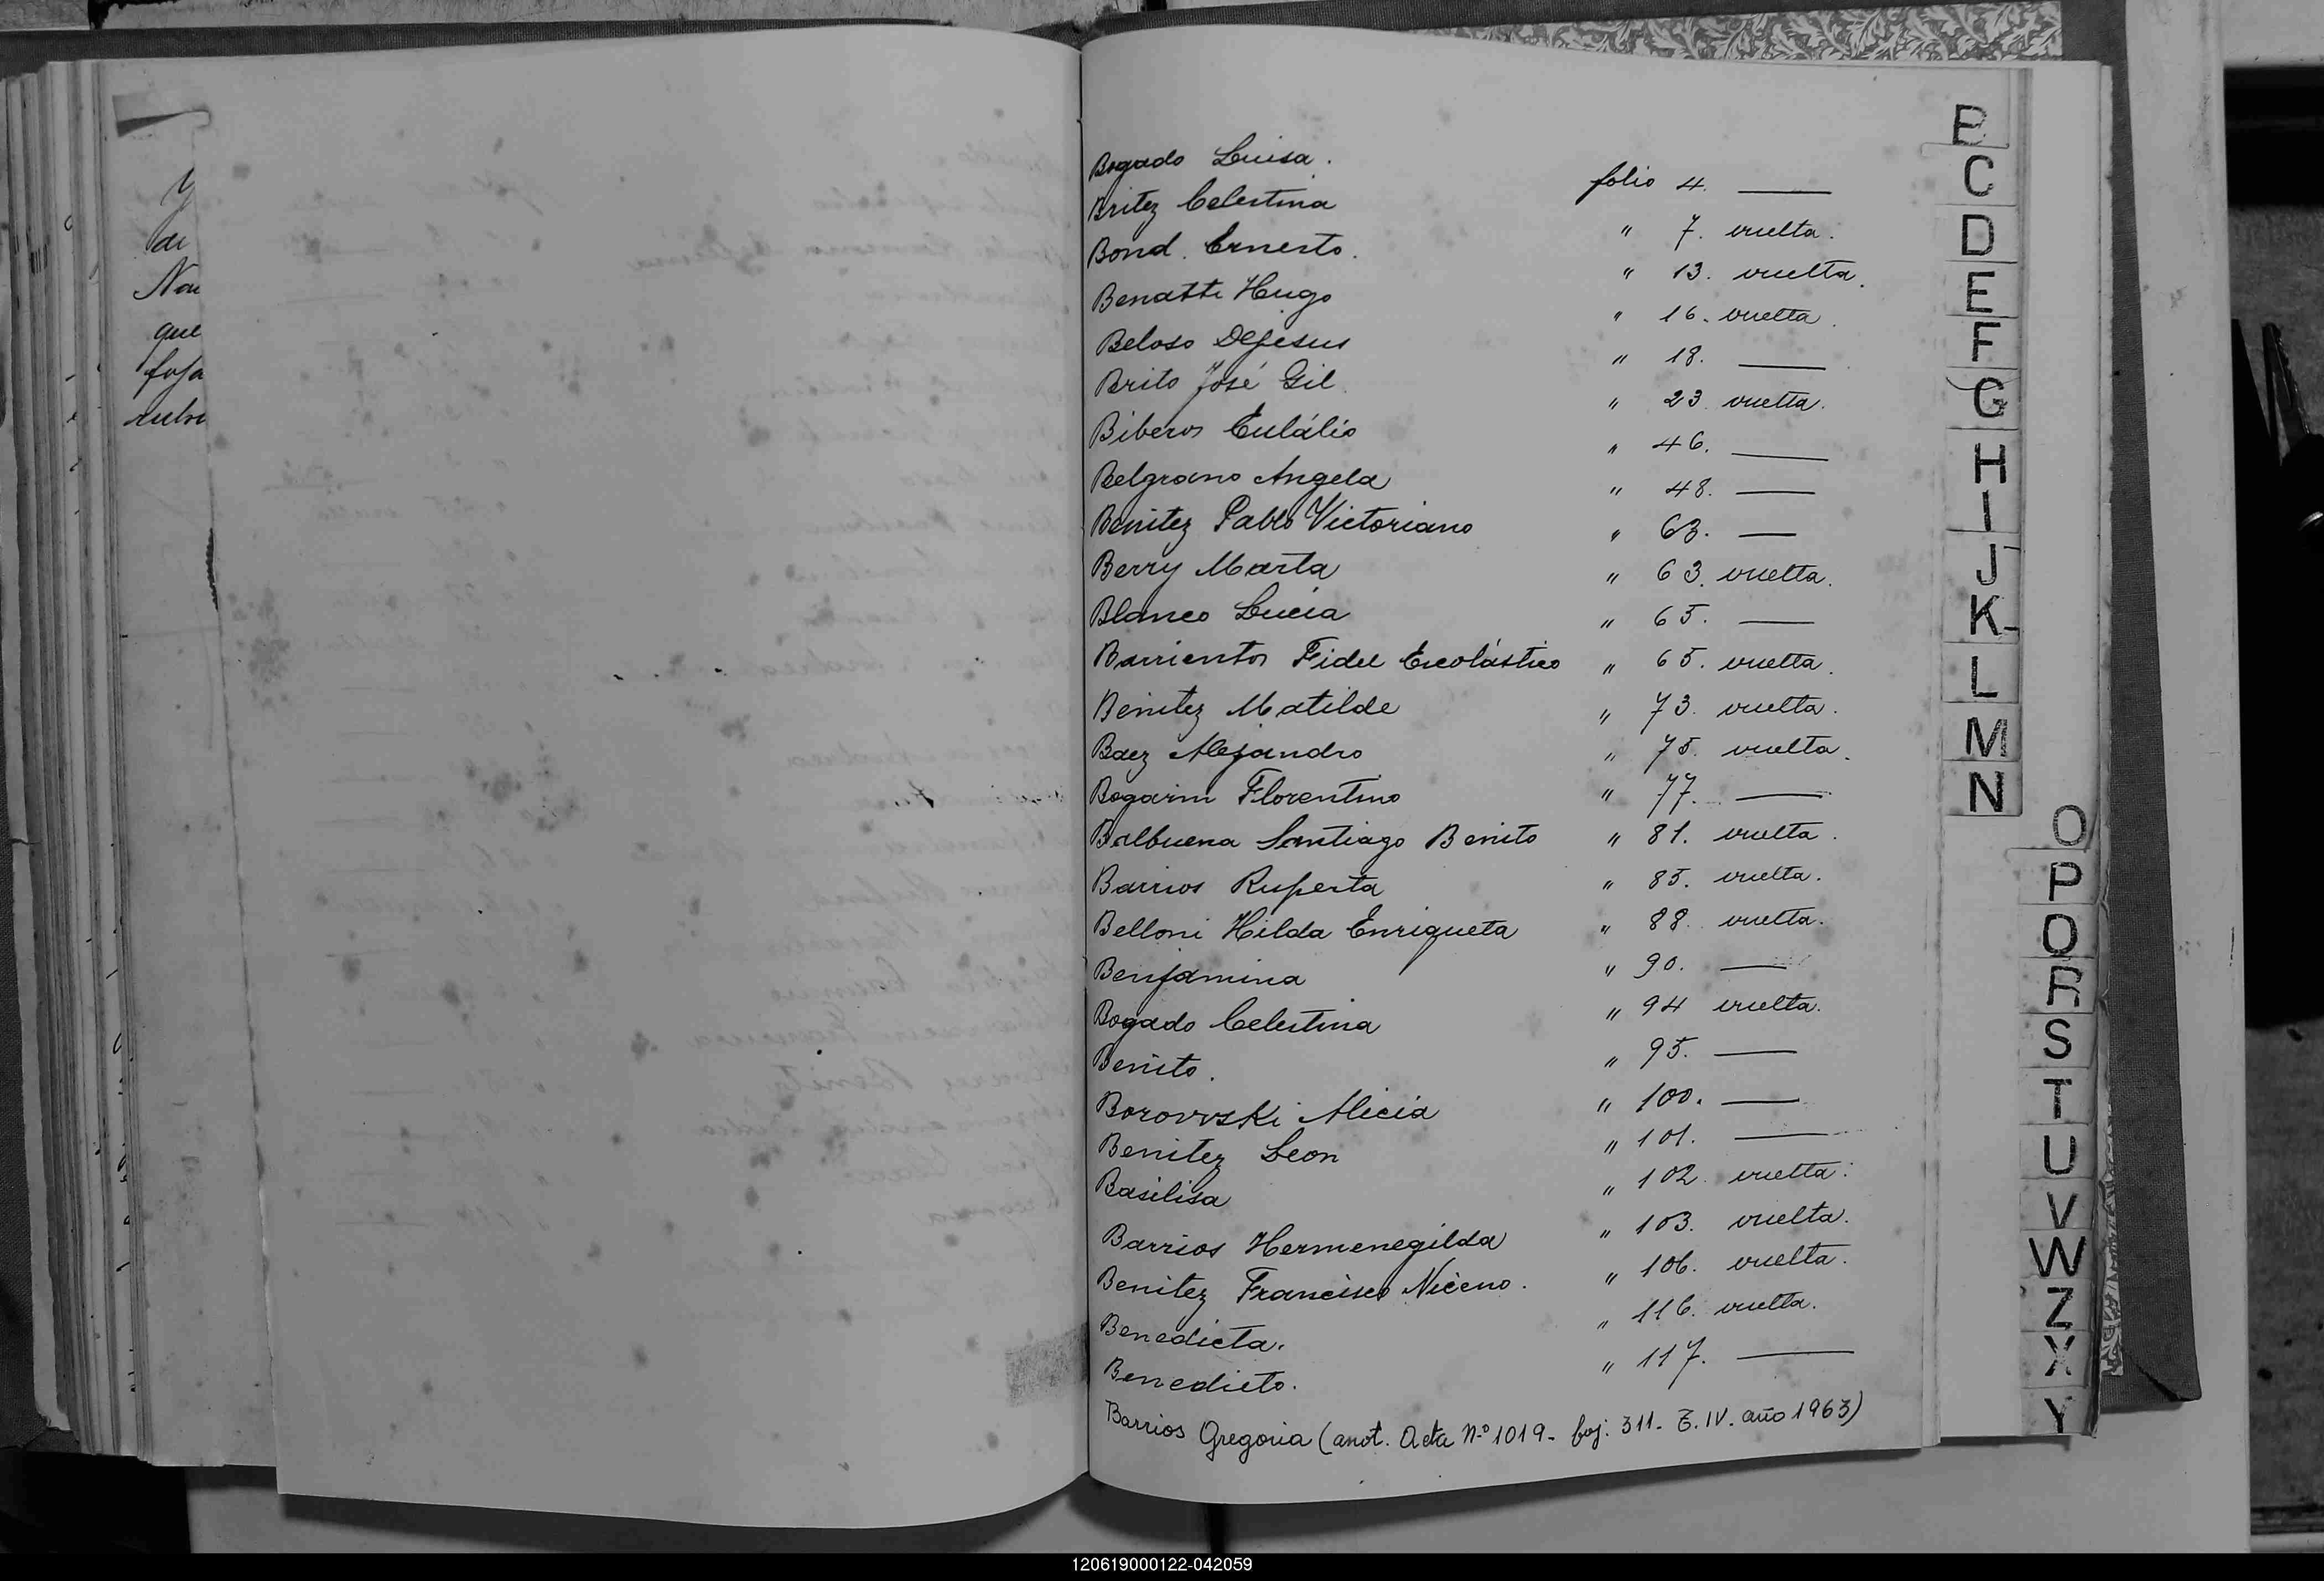 Y
de
que
foja
Bogado Luisa. folio 4. ——
Britez Celestina " 7. vuelta.
Bond. Ernesto. " 13. vuelta.
Benatti Hugo " 16. vuelta.
Beloso DeJesus " 18. ——
Brito José Gil " 23 vuelta.
Biberos Eulálio " 46. ——
Belgrano Angela " 48. ——
Benitez Pablo Victoriano " 63. ——
Berry Marta " 63. vuelta.
Blanco Lucia " 65. ——
Barrientos Fidel Escolástico " 65. vuelta.
Benitez Matilde " 73. vuelta.
Baez Alejandro " 75. vuelta.
Bogarin Florentino " 77. ——
Balbuena Santiago Benito " 81. vuelta.
Barrios Ruperta " 85. vuelta.
Belloni Hilda Enriqueta " 88. vuelta.
Benjamina " 90. ——
Bogado Celestina " 94 vuelta.
Benito. " 95. ——
Borovvski Alicia " 100. ——
Benitez Leon " 101. ——
Basilisa " 102. vuelta.
Barrios Hermenegilda " 103. vuelta.
Benitez Francisco Niceno. " 106. vuelta.
Benedicta. " 116. vuelta.
Benedicto. " 117. ——
Barrios Gregoria (anot. Acta Nº 1019- foj. 311- T. IV. año 1963)
B
C
D
E
F
G
H
I
J
K
L
M
N
O
P
Q
R
S
T
U
V
W
Z
X
Y
120619000122-042059